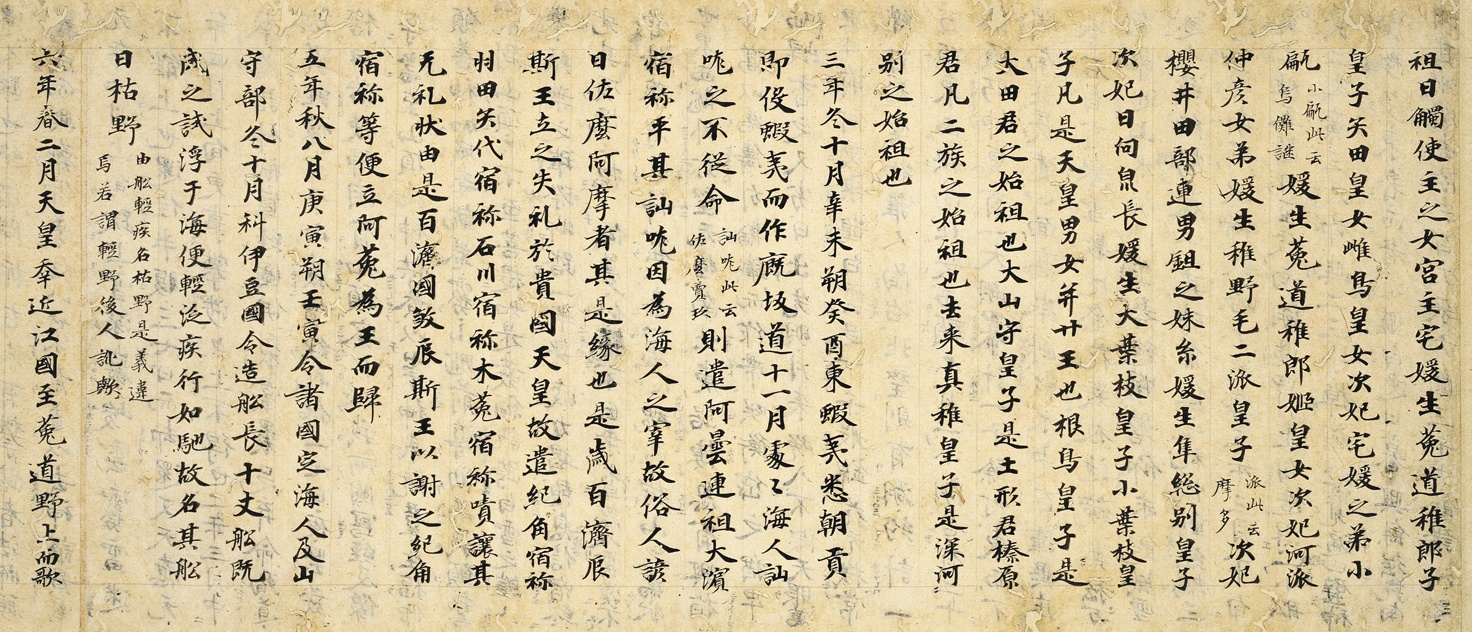 祖日觸使主之女宮主宅媛生菟道稚郎子
皇子矢田皇女雌鳥皇女次妃宅媛之弟小
甂小甂此云烏儺謎媛生菟道稚郎姬皇女次妃河派
仲彥女弟媛生稚野毛二派皇子派此云摩多次妃
櫻井田部連男鉏之妹糸媛生隼総別皇子
次妃日向泉長媛生大葉枝皇子小葉枝皇
子凡是天皇男女并廿王也根鳥皇子是
大田君之始祖也大山守皇子是土形君榛原
君凡二族之始祖也去来真稚皇子是深河
別之始祖也
三年冬十月辛未朔癸酉東蝦夷悉朝貢
即伇蝦夷而作厩坂道十一月䖏〻海人訕
哤之不從命訕哤此云佐麼賣玖則遣阿曇連祖大濱
宿祢平其訕哤因為海人之宰故俗人諺
曰佐麼阿摩者其是緣也是歳百濟辰
斯王立之失礼於貴國天皇故遣紀角宿祢
羽田矢代宿祢石川宿祢木菟宿祢嘖讓其
无礼狀由是百濟國敘辰斯王以謝之紀角
宿祢等便立阿菟為王而歸
五年秋八月庚寅朔壬寅令諸國定海人及山
守部冬十月科伊豆國令造舩長十丈舩既
成之試浮于海便輕泛疾行如馳故名其舩
曰枯野由舩輕疾名枯野是義違焉若謂輕野後人訛歟
六年春二月天皇幸近江國至菟道野上而歌